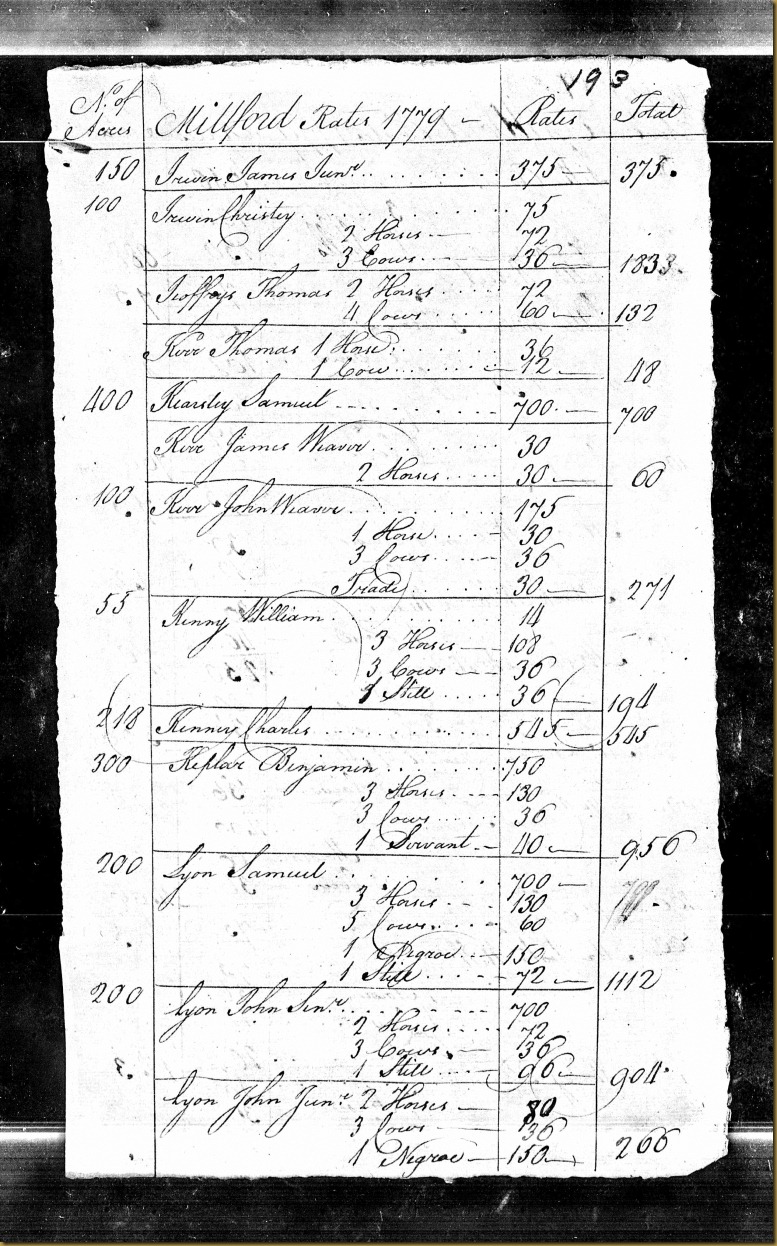 193
No. of Acres Millford Rates 1779 — Rates Total
150 Irwin James Junr. 375 — 375.
100 Irwin Christey 75
2 Horses 72
3 Cows 36 — 183
Jeoffrys Thomas 2 Horses 72
4 Cows 60 — 132
Kerr Thomas 1 Horse 36
1 Cow 12 — 48
400 Kearsley Samuel 700 — 700
Kerr James Weaver 30
2 Horses 30 — 60
100 Kerr John Weaver 175
1 Horse 30
3 Cows 36
Trade 30 — 271
55 Kenny William 14
3 Horses 108
3 Cows 36
1 Still 36 — 194
218 Kenney Charles 545 — 545
300 Keplar Benjamin 750
3 Horses 130
3 Cows 36
1 Servant 40 — 956
200 Lyon Samuel 700 —
3 Horses 130
5 Cows 60
1 Negroe 150
1 Still 72 — 1112
200 Lyon John Senr. 700
2 Horses 72
3 Cows 36
1 Still 96 — 904
Lyon John Junr. 2 Horses — 80
3 Cows 36
1 Negroe — 150 — 266